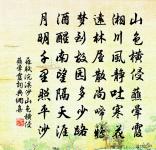 山色橫侵蘸暈霞
湘川風靜吐寒花
遠林屋散尚啼鴉
夢到故園多少路
酒醒南望隔天涯
月明千里照平沙
蘇軾浣溪沙山色橫侵
蘸暈霞詞典網集